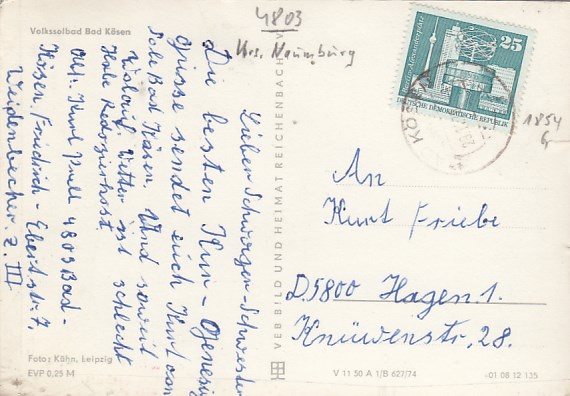 4803
Krs. Naumburg
Volkssolbad Bad Kösen
Lieber Schwager-Schwester
Die besten Kur-Genesig
grüsse sendet euch Kurt aus
Sole Bad Kösen. Und soweit
Wetter ist schlecht
Habe
Abs. Kurt 4803 Bad-
Kösen, Friedrich-Ebertstr. 7.
Z. III
25
Berlin, Alexanderplatz
DEUTSCHE DEMOKRATISCHE REPUBLIK
KÖSEN
1854
Gr
An
Kurt Friebe
D.5800 Hagen. 1.
Knüwenstr. 28.
VEB BILD UND HEIMAT REICHENBACH (V
Foto: Kühn, Leipzig
EVP 0,25 M
V 11 50 A 1/B 627/74
01 08 12 135